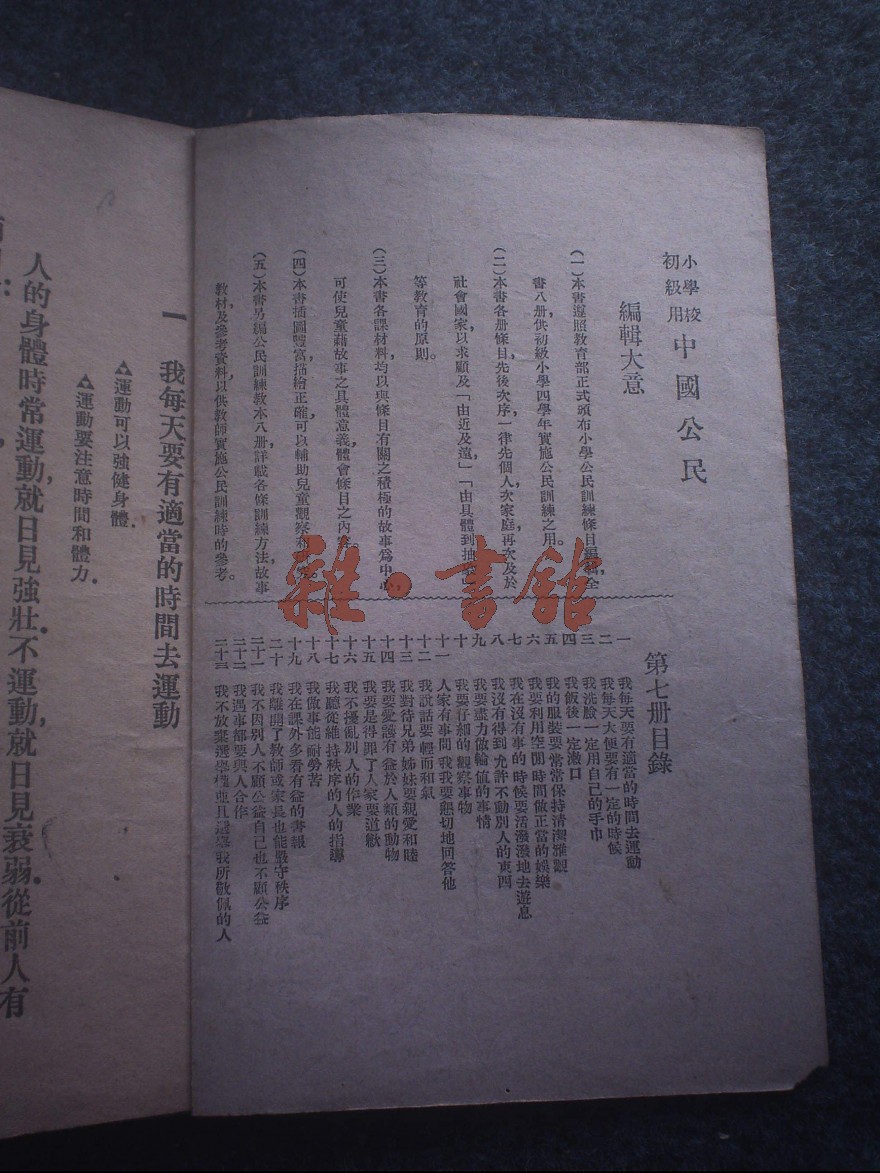 小學校
初級用
中國公民
編輯大意
(一)本書遵照教育部正式頒布小學公民訓練條目編輯全
書八册,供初級小學四學年實施公民訓練之用。
(二)本書各册條目,先後次序,一律先個人次家庭再次及於
社會國家以求顧及「由近及遠」「由具體到抽象」
等教育的原則。
(三)本書各課材料均以與條目有關之積極的故事爲中心,
可使兒童藉故事之具體意義,體會條目之內容。
(四)本書插圖豐富描繪正確可以輔助兒童觀察和
(五)本書另編公民訓練教本八册,詳載各條訓練方法故事
教材及參考資料,以供教師實施公民訓練時的參考。
第七册目錄
一 我每天要有適當的時間去運動
二 我每天大便要有一定的時候
三 我洗臉一定用自己的手巾
四 我飯後一定漱口
五 我的服裝要常常保持清潔雅觀
六 我要利用空閒時間做正當的娛樂
七 我在沒有事的時候要活潑潑地去遊息
八 我沒有得到允許不動別人的東西
九 我要盡力做輪值的事情
十 我要仔細的觀察事物
十一 人家有事問我我要懇切地回答他
十二 我說話要輕而和氣
十三 我對待兄弟姊妹要親愛和睦
十四 我要愛護有益於人類的動物
十五 我要是得罪了人家要道歉
十六 我不擾亂別人的作業
十七 我聽從維持秩序的人的指導
十八 我做事能耐勞苦
十九 我在課外多看有益的書報
二十 我離開了教師或家長也能嚴守秩序
二十一 我不因別人不顧公益自己也不顧公益
二十二 我遇事都要與人合作
二十三 我不放棄選舉權並且選舉我所敬佩的人
雜·書館
一 我每天要有適當的時間去運動
運動可以強健身體。
運動要注意時間和體力。
人的身體時常運動,就日見強壯;不運動,就日見衰弱。從前人有